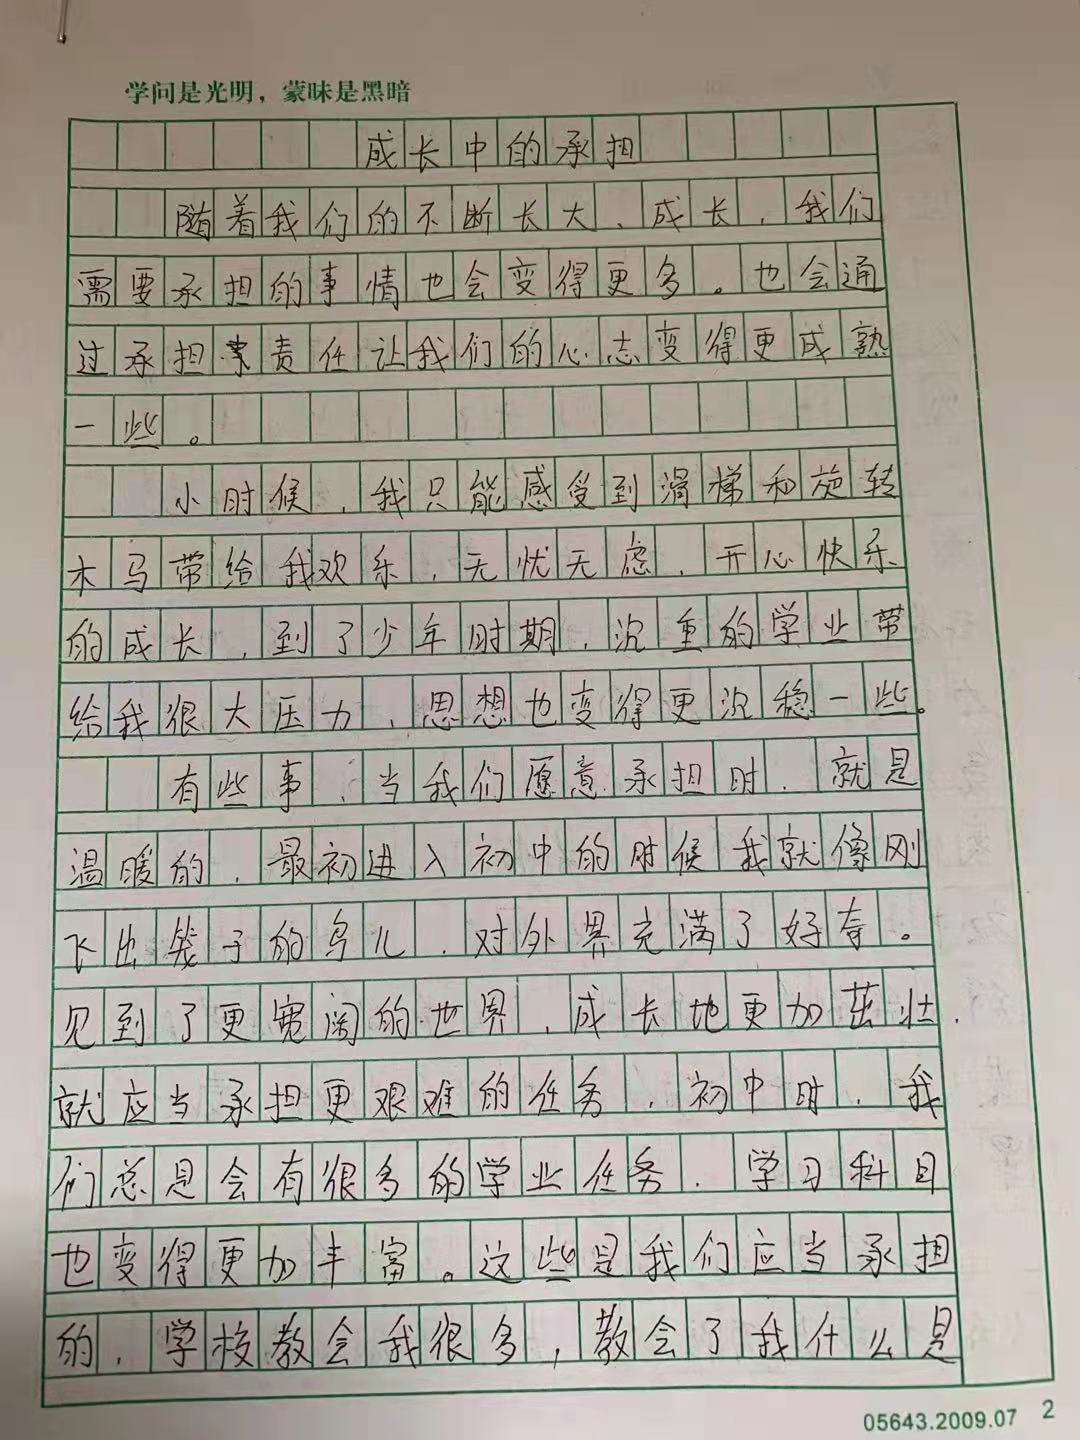 学问是光明，蒙昧是黑暗
成长中的承担
随着我们的不断长大、成长，我们
需要承担的事情也会变得更多。也会通
过承担责任让我们的心志变得更成熟
一些。
小时候，我只能感受到滑梯和旋转
木马带给我欢乐，无忧无虑，开心快乐
的成长，到了少年时期，沉重的学业带
给我很大压力，思想也变得更沉稳一些。
有些事，当我们愿意承担时，就是
温暖的，最初进入初中的时候我就像刚
飞出笼子的鸟儿，对外界充满了好奇。
见到了更宽阔的世界，成长地更加茁壮，
就应当承担更艰难的任务，初中时，我
们总是会有很多的学业任务，学习科目
也变得更加丰富。这些是我们应当承担
的，学校教会我很多，教会了我什么是
05643.2009.07 2